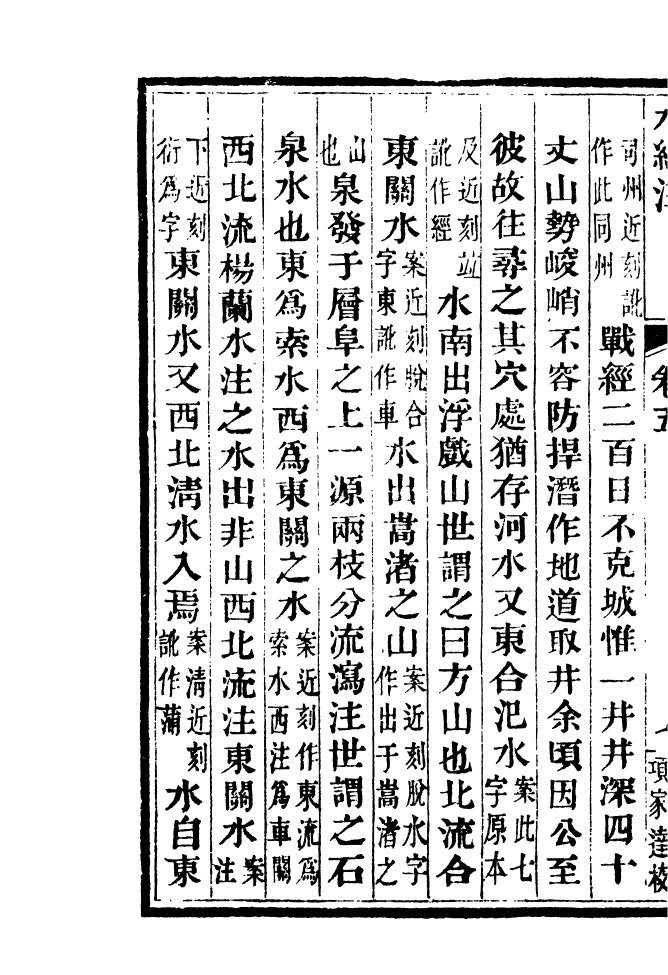 水經注
卷五
項家達校
司州近刻訛作此同州戰經二百日不克城惟一井井深四十
丈山勢峻峭不容防捍潛作地道取井余頃因公至
彼故往尋之其穴處猶存河水又東合汜水案此七字原本
及近刻並訛作經水南出浮戲山世謂之曰方山也北流合
東關水案近刻脫合字東訛作車水出嵩渚之山案近刻脫水字作出于嵩渚之
山也泉發于層阜之上一源兩枝分流瀉注世謂之石
泉水也東爲索水西爲東關之水案近刻作東流爲索水西注爲車關
西北流楊蘭水注之水出非山西北流注東關水案注
下近刻衍爲字東關水又西北淸水入焉案淸近刻訛作蒲水自東